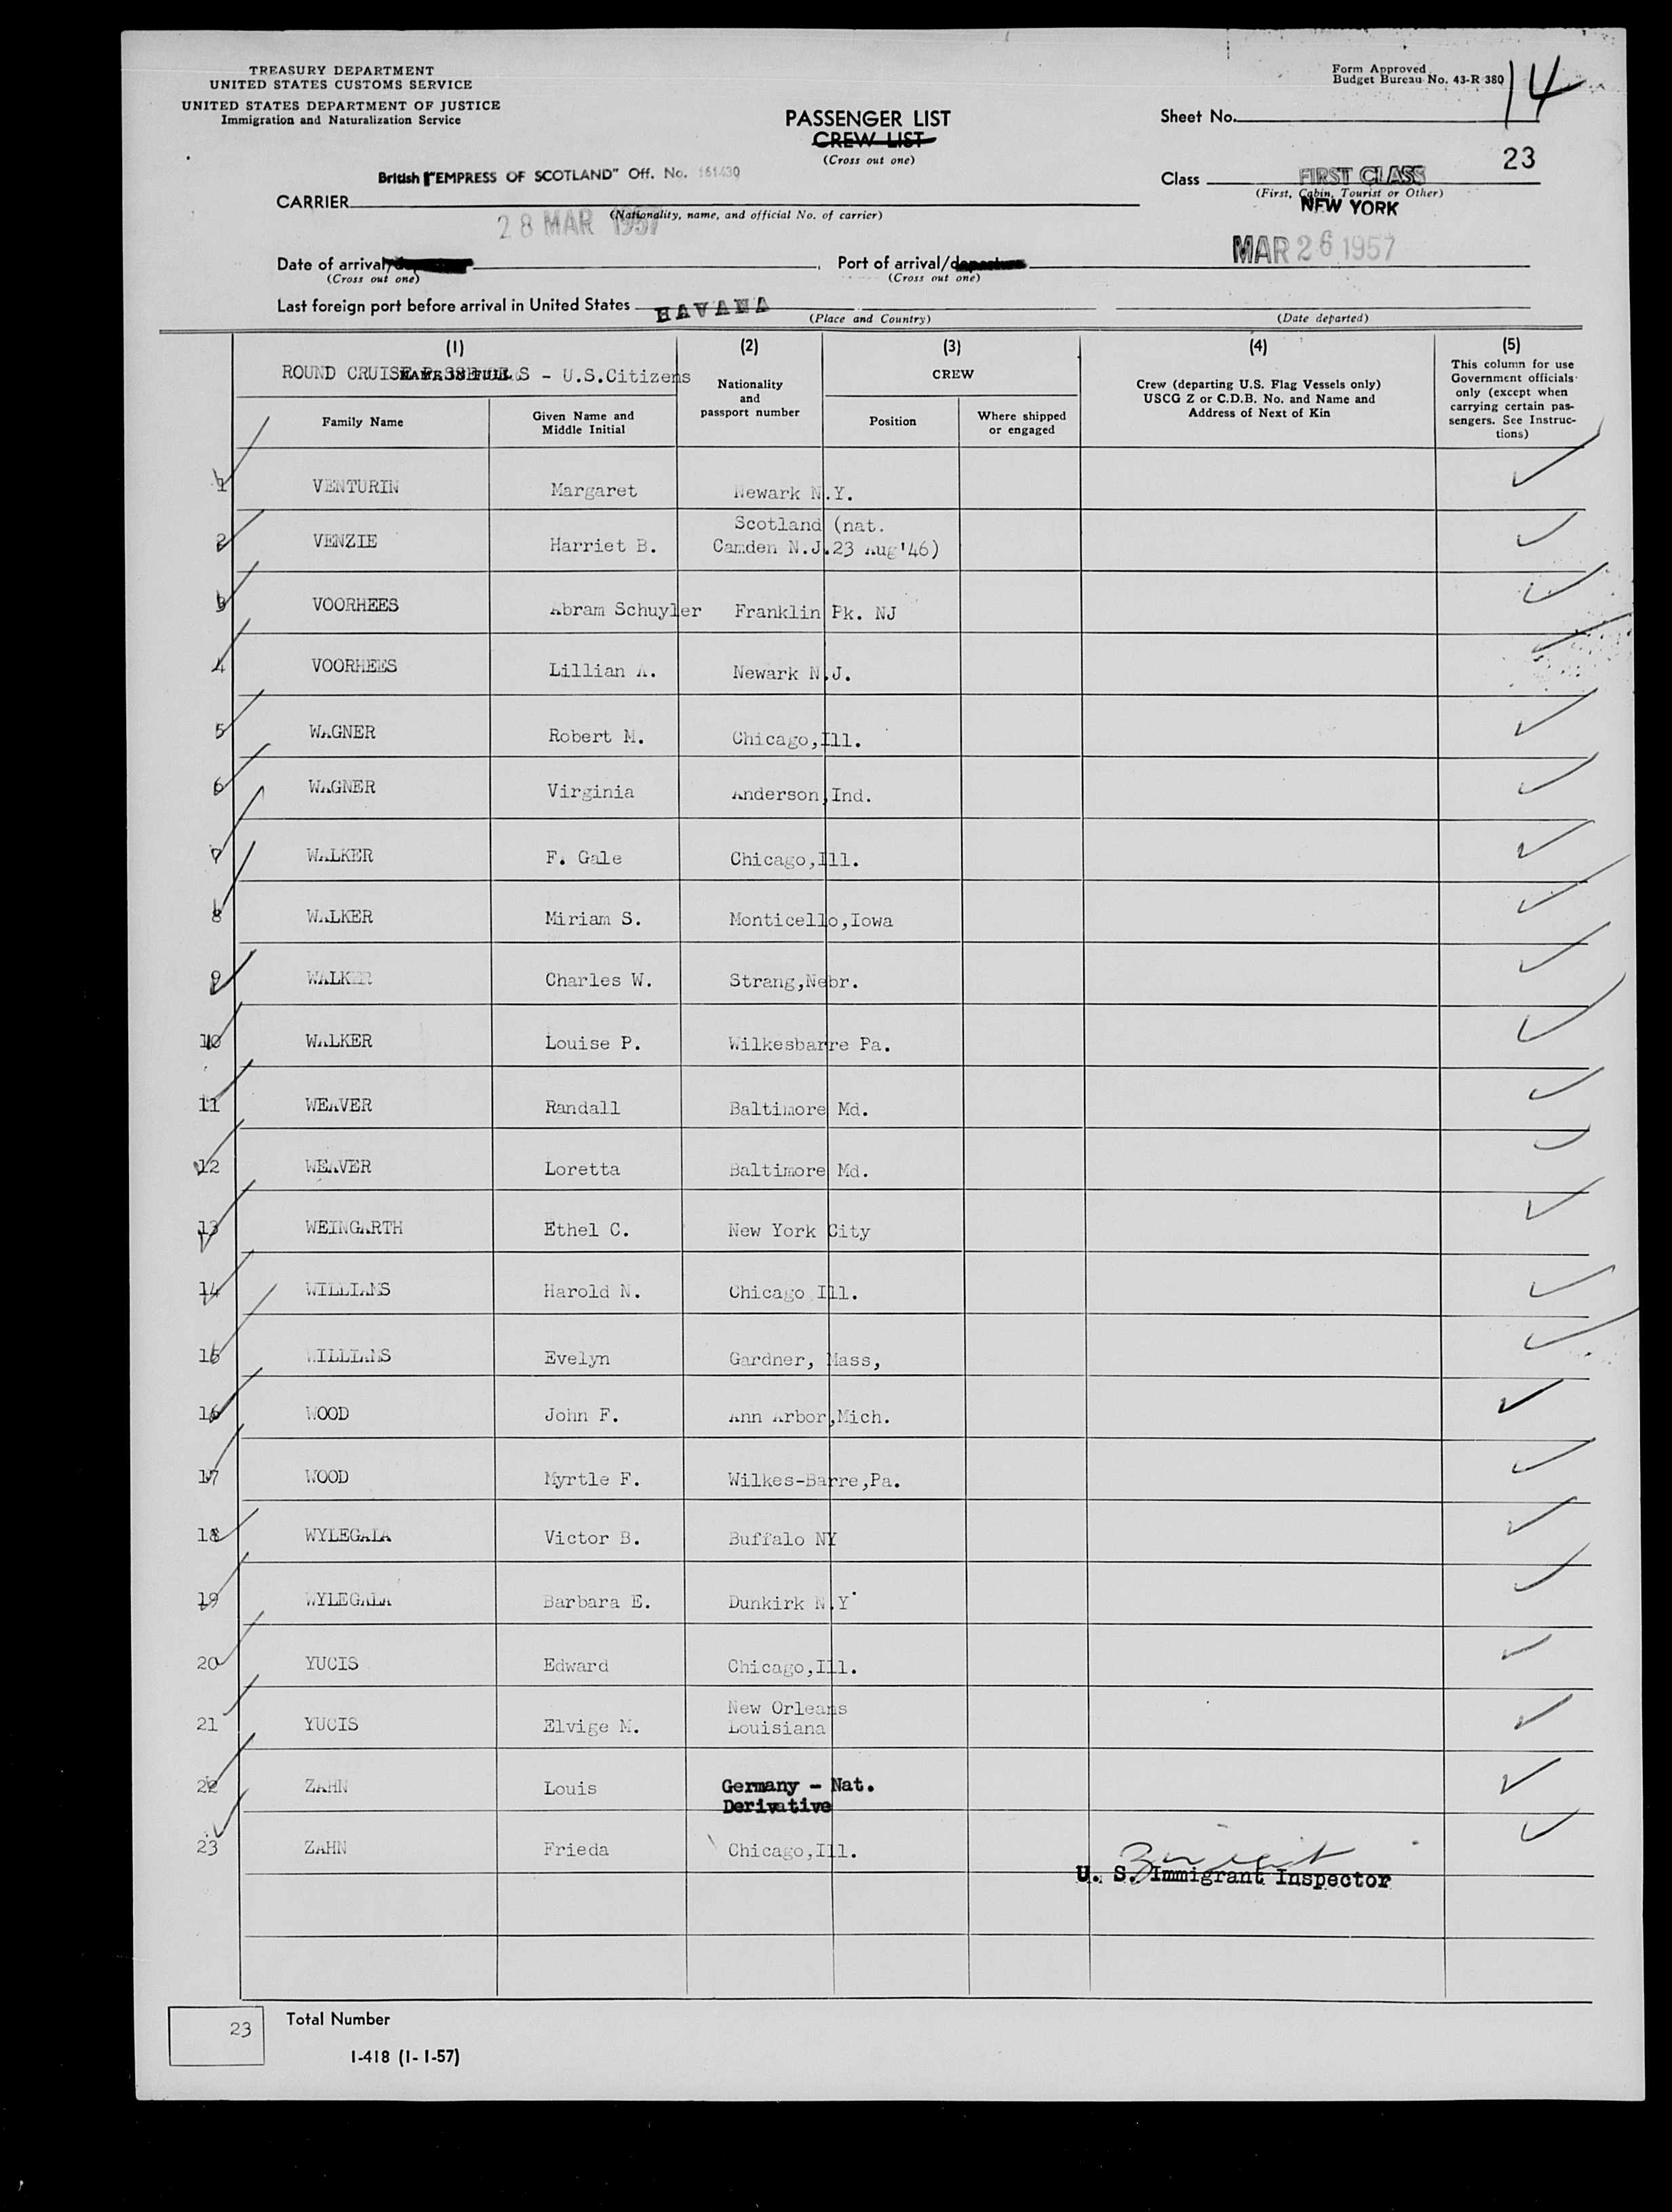 TREASURY DEPARTMENT
UNITED STATES CUSTOMS SERVICE
UNITED STATES DEPARTMENT OF JUSTICE
Immigration and Naturalization Service
Form Approved
Budget Bureau No. 43-R 380
PASSENGER LIST
CREW LIST
(Cross out one)
Sheet No. 14
23
British "EMPRESS OF SCOTLAND" Off. No. 161430
CARRIER
(Nationality, name, and official No. of carrier)
Class FIRST CLASS
(First, Cabin, Tourist or Other)
NEW YORK
28 MAR 1957
MAR 26 1957
Date of arrival/
(Cross out one)
Port of arrival/departure
(Cross out one)
Last foreign port before arrival in United States HAVANA
(Place and Country)
(Date departed)
(1) (2) (3) (4) (5)
ROUND CRUISE PASSENGERS - U.S.Citizens
NAME IN FULL
Nationality
and
passport number
CREW
Crew (departing U.S. Flag Vessels only)
USCG Z or C.D.B. No. and Name and
Address of Next of Kin
This column for use
Government officials
only (except when
carrying certain pas-
sengers. See Instruc-
tions)
Family Name
Given Name and
Middle Initial
Position
Where shipped
or engaged
1 VENTURIN Margaret Newark N.Y.
2 VENZIE Harriet B. Scotland (nat.
Camden N.J.23 Aug'46)
3 VOORHEES Abram Schuyler Franklin Pk. NJ
4 VOORHEES Lillian A. Newark N.J.
5 WAGNER Robert M. Chicago,Ill.
6 WAGNER Virginia Anderson,Ind.
7 WALKER F. Gale Chicago,Ill.
8 WALKER Miriam S. Monticello,Iowa
9 WALKER Charles W. Strang,Nebr.
10 WALKER Louise P. Wilkesbarre Pa.
11 WEAVER Randall Baltimore Md.
12 WEAVER Loretta Baltimore Md.
13 WEINGARTH Ethel C. New York City
14 WILLIAMS Harold N. Chicago Ill.
15 WILLIAMS Evelyn Gardner, Mass,
16 WOOD John F. Ann Arbor,Mich.
17 WOOD Myrtle F. Wilkes-Barre,Pa.
18 WYLEGALA Victor B. Buffalo NY
19 WYLEGALA Barbara E. Dunkirk N.Y
20 YUCIS Edward Chicago,Ill.
21 YUCIS Elvige M. New Orleans
Louisiana
22 ZAHN Louis Germany - Nat.
Derivative
23 ZAHN Frieda Chicago,Ill.
U. S. Immigrant Inspector
23 Total Number
I-418 (1-1-57)